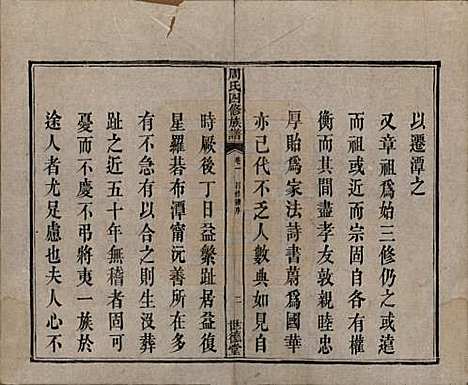 以遷潭之
又章祖爲始三修仍之雖遠
而祖或近而宗固自各有權
衡而其間盡孝友敦親睦忠
厚貽爲家法詩書蔚爲國華
亦已代不乏人數典如見自
周氏四修族譜
卷一
二
世德堂
時厥後丁日益繁趾居益復
星羅碁布潭甯沅善所在多
有不急有以合之則生没葬
趾之近五十年無稽者固可
憂而不慶不弔將夷一族於
途人者尤足慮也夫人心不